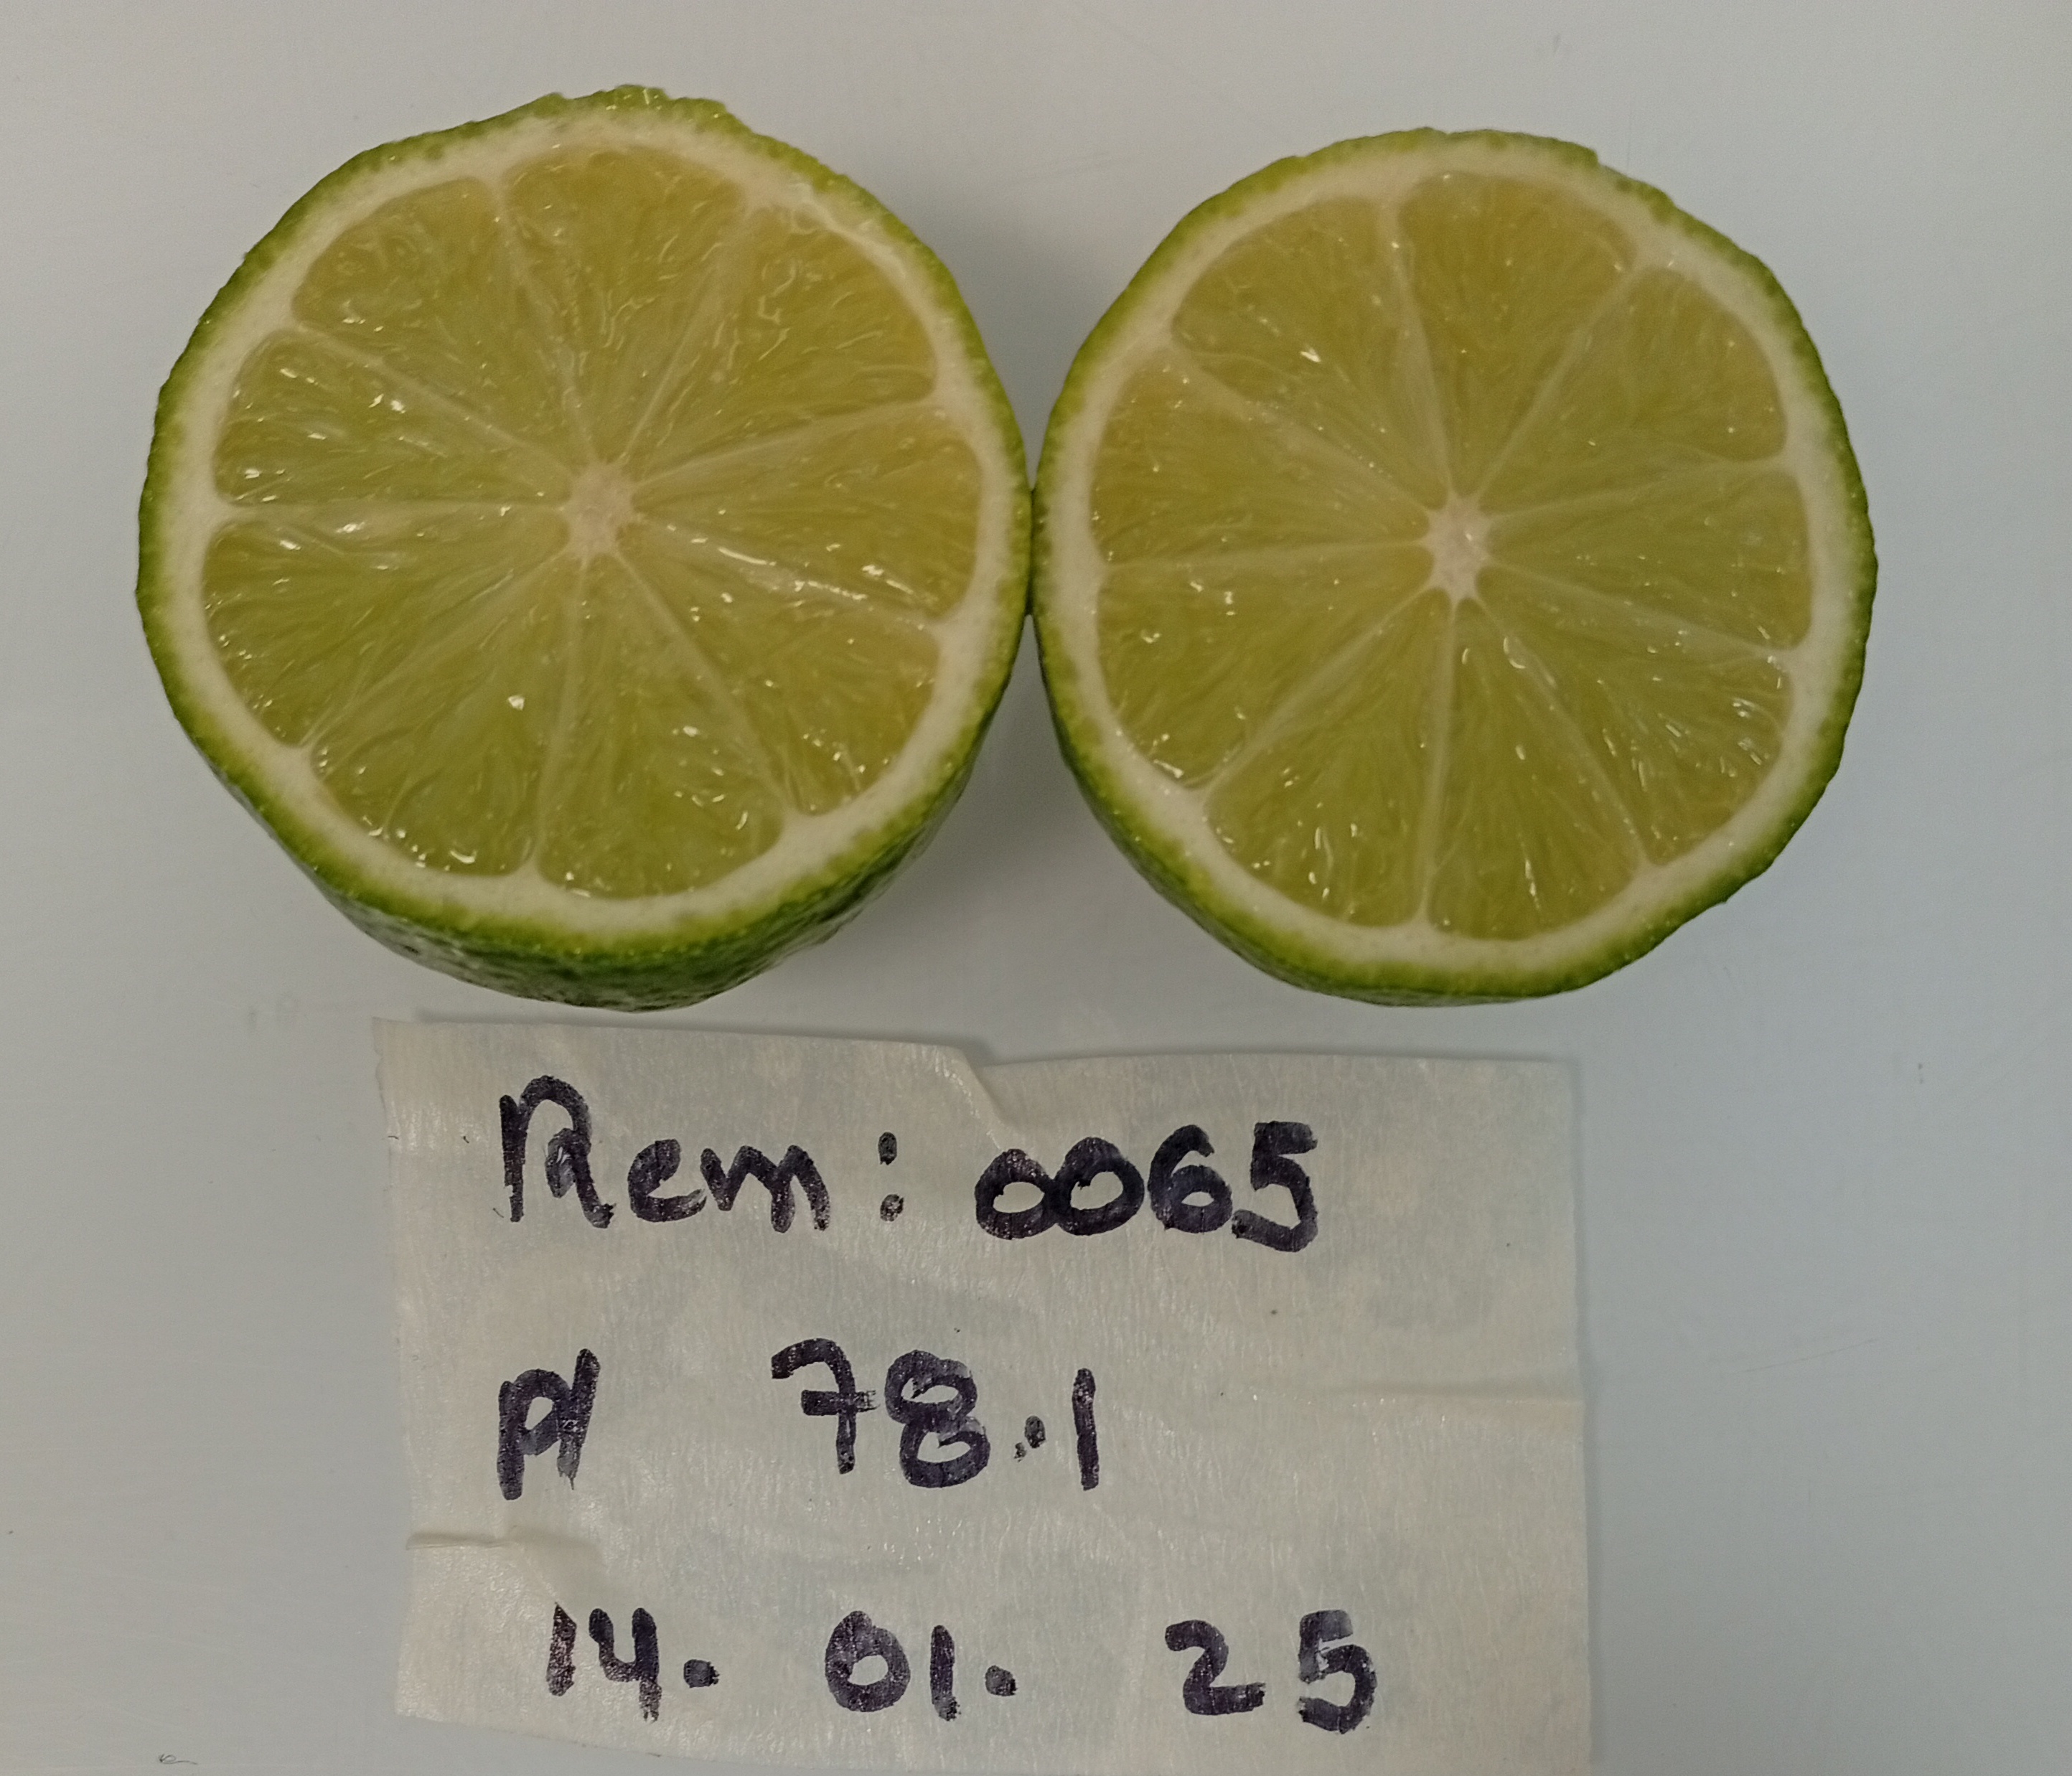 Rem: 0065
pl 78.1
14. 01. 25